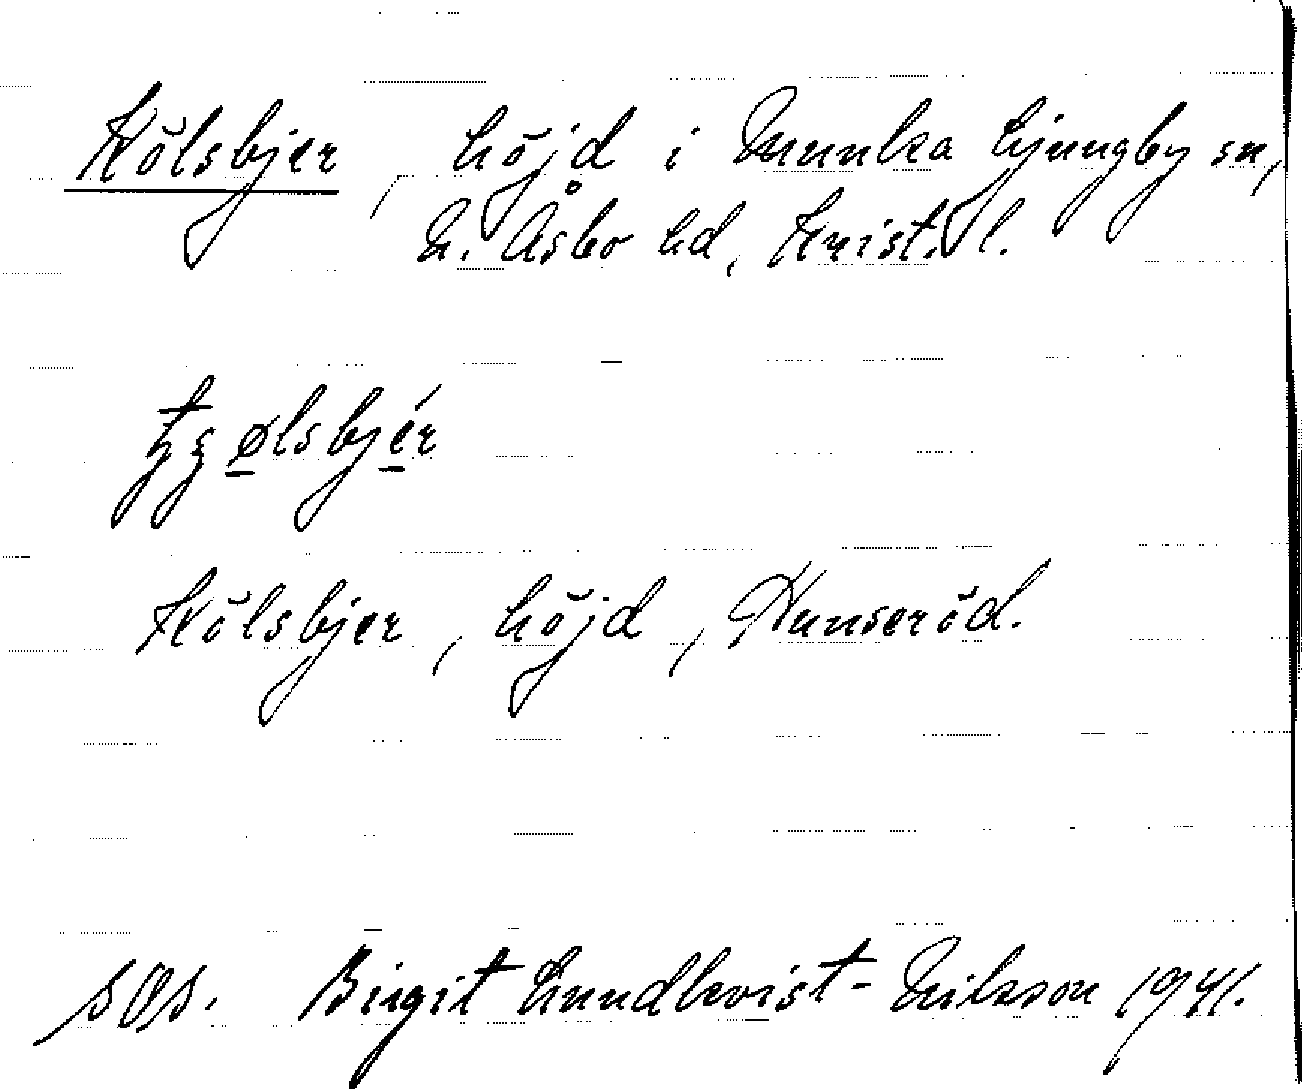 Kölsbjer, höjd i Munka Ljungby sn,
N. Åsbo hd, Krist. l.
tʒølsbjér
Kölsbjer, höjd, Hunseröd.
SOS. Birgit Lundkvist-Nilsson 1941.